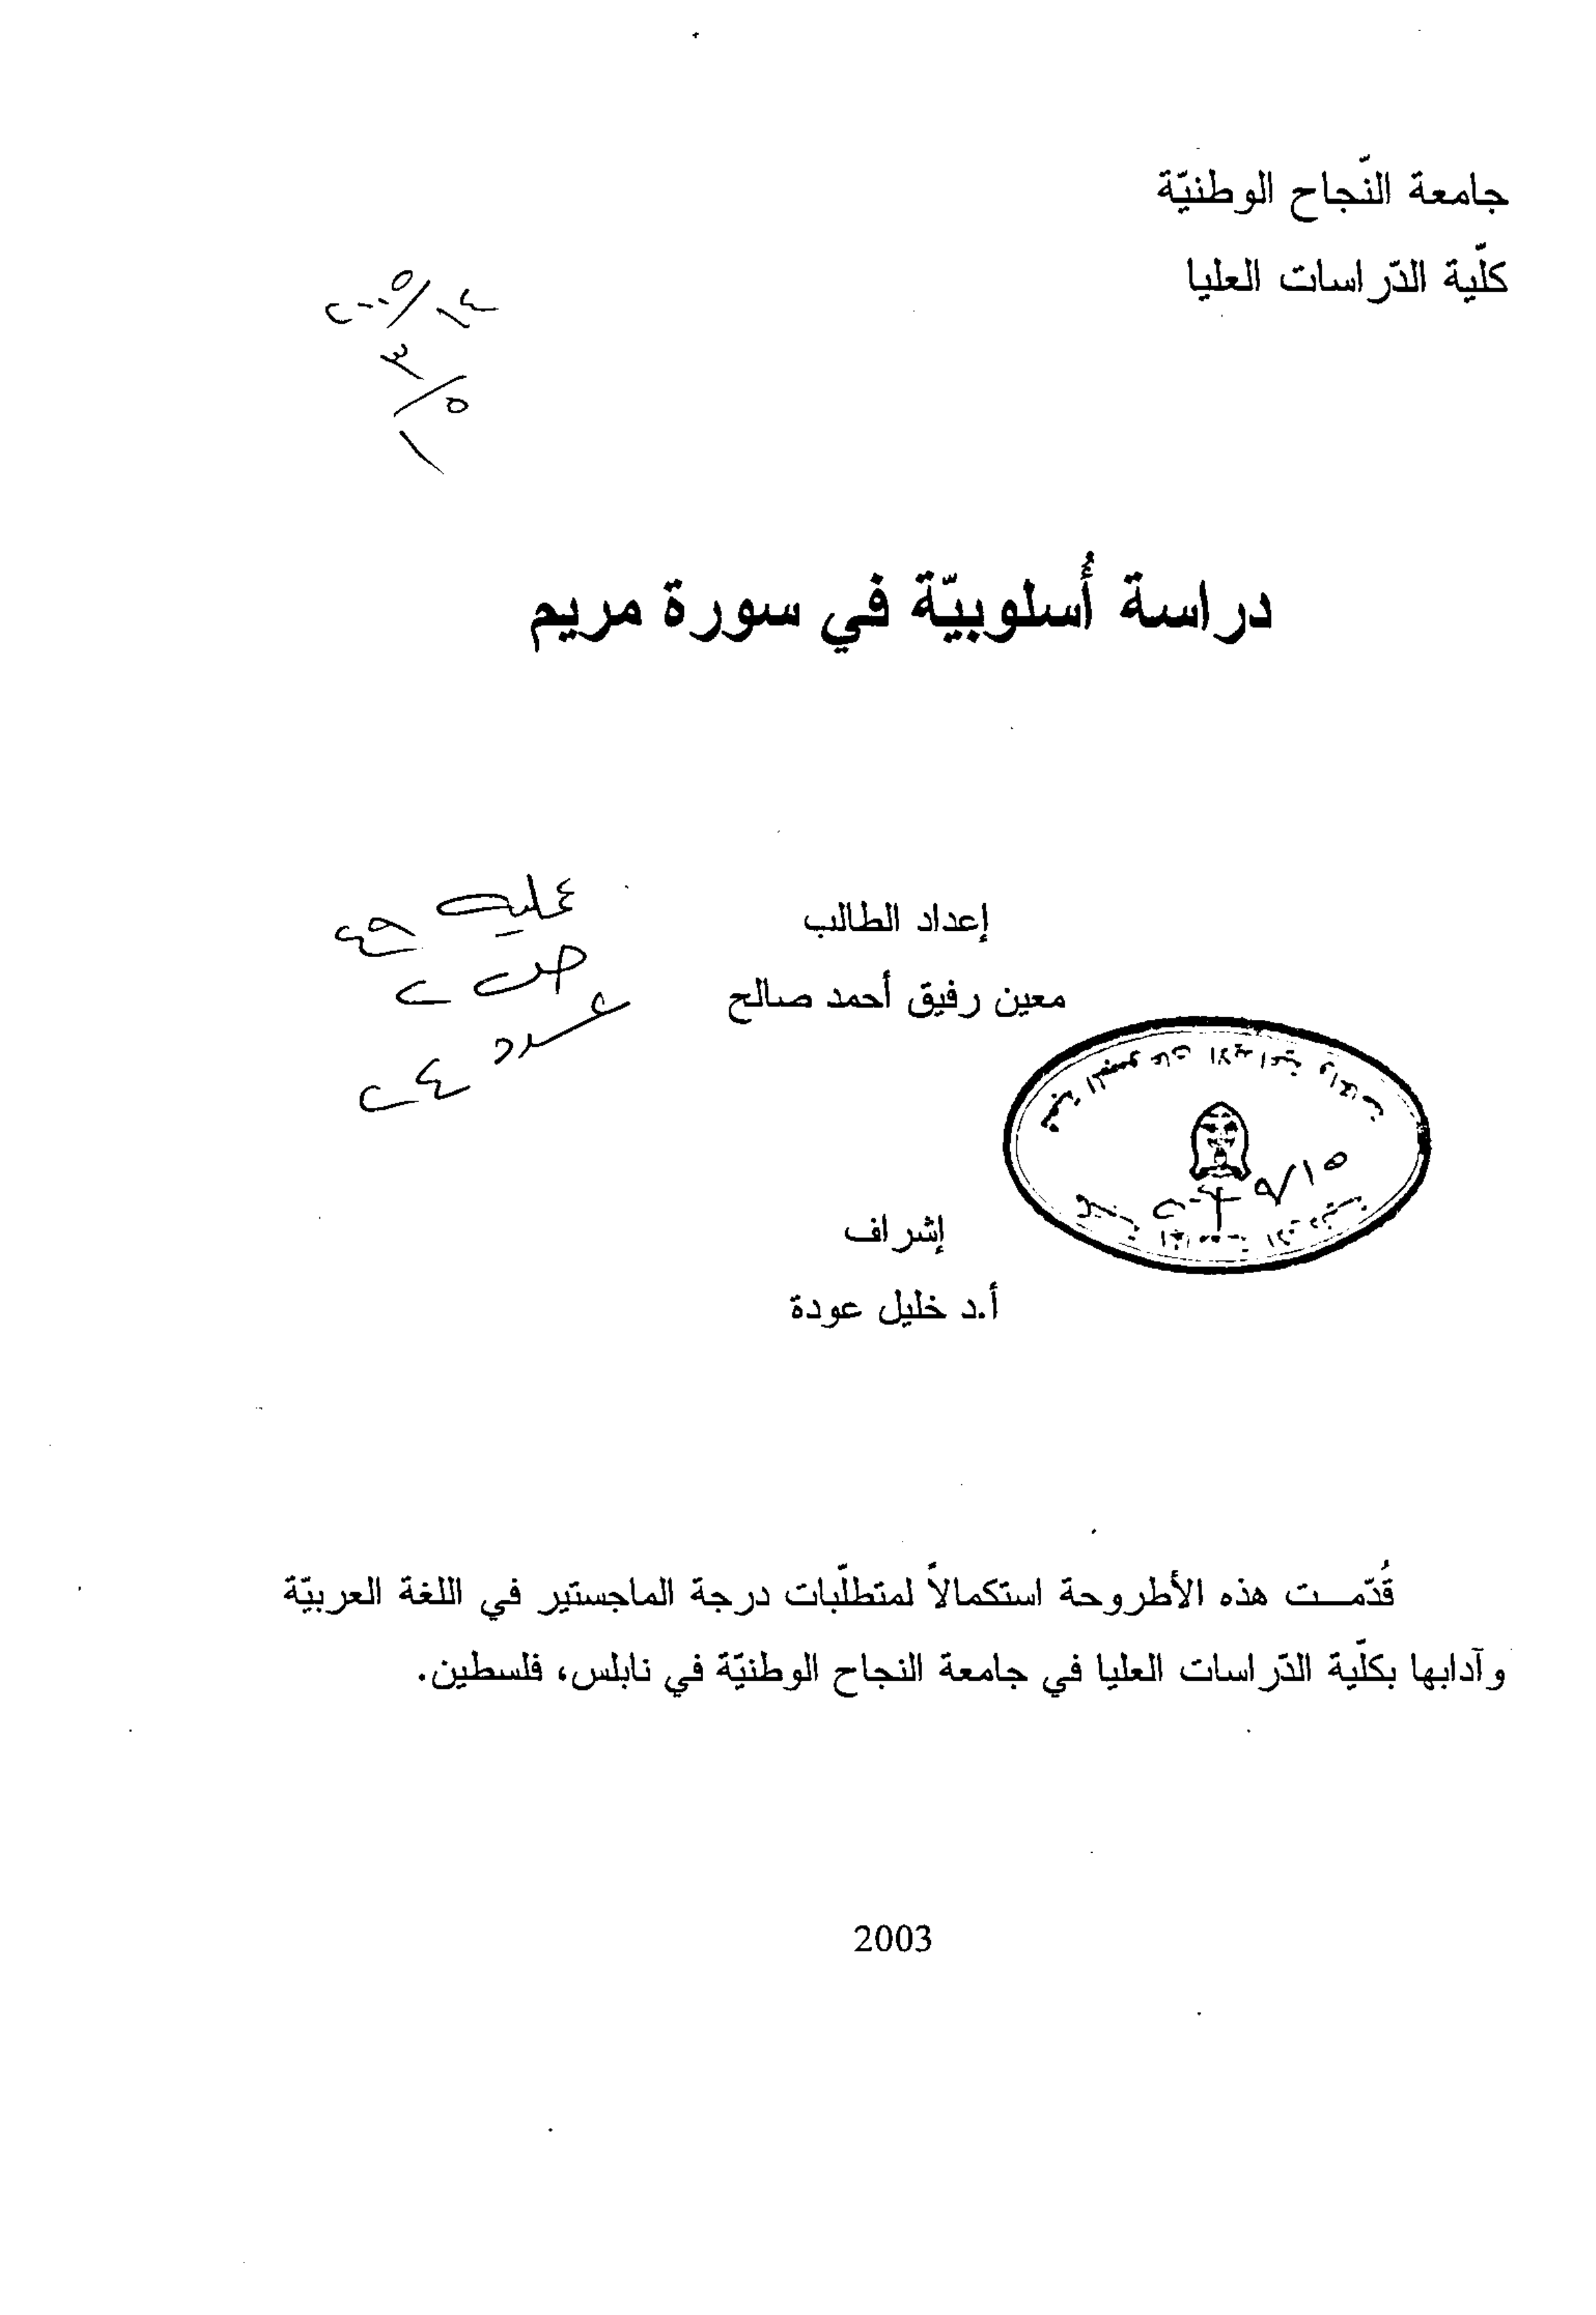 جامعة النّجاح الوطنيّة
كلّية الدّراسات العليا
٢٠٠٥/
٣
/٥
١
دراسة أُسلوبيّة في سورة مريم
إعداد الطالب
معين رفيق أحمد صالح
عدد
٢٤
٩/١٥
إشراف
أ.د خليل عودة
قُدّمــت هذه الأطروحة استكمالاً لمتطلّبات درجة الماجستير في اللغة العربيّة
وآدابها بكلّية الدّراسات العليا في جامعة النجاح الوطنيّة في نابلس، فلسطين.
2003